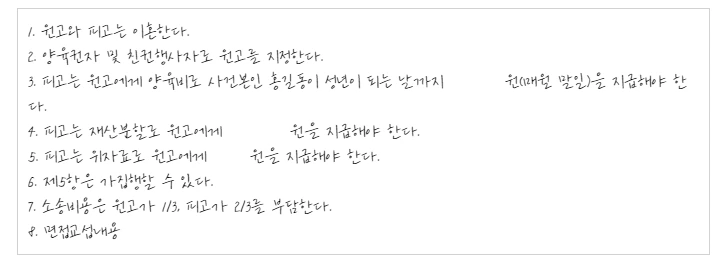 1. 원고와 피고는 이혼한다.
2. 양육권자 및 친권행사자로 원고를 지정한다.
3. 피고는 원고에게 양육비로 사건본인 홍길동이 성년이 되는 날까지 원(매월 말일)을 지급해야 한
다.
4. 피고는 재산분할로 원고에게 원을 지급해야 한다.
5. 피고는 위자료로 원고에게 원을 지급해야 한다.
6. 제5항은 가집행할 수 있다.
7. 소송비용은 원고가 1/3, 피고가 2/3를 부담한다.
8. 면접교섭내용